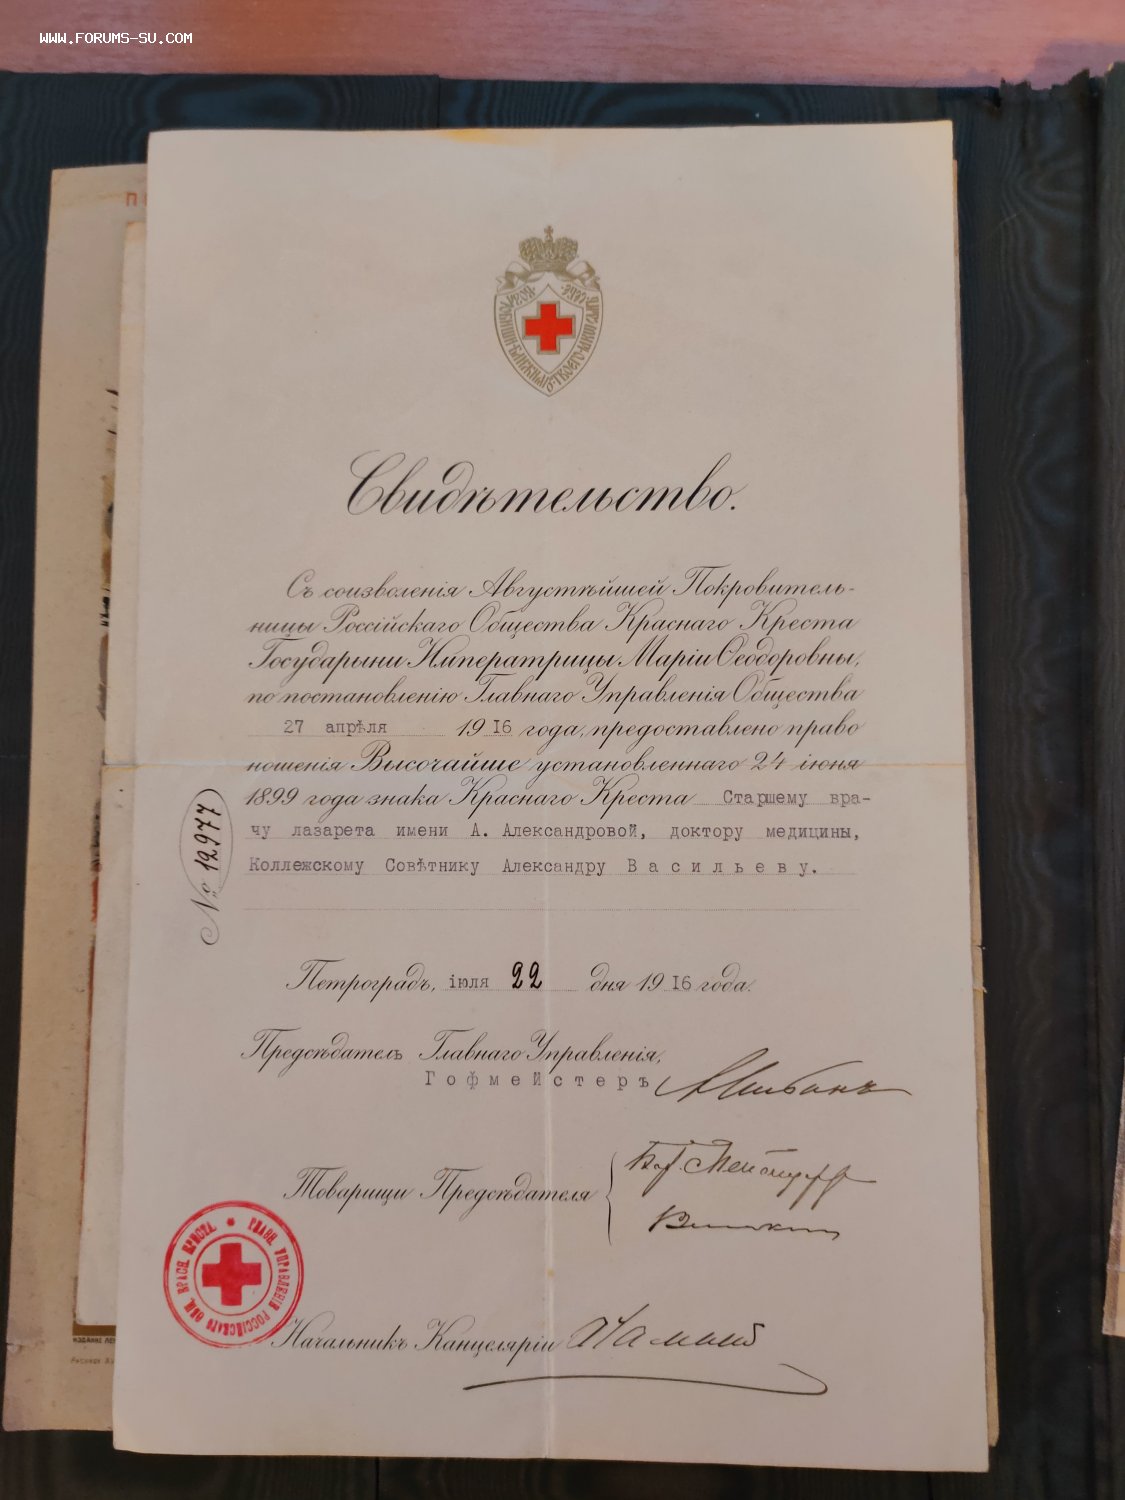 WWW.FORUMS-SU.COM
Свидѣтельство.
Съ соизволенія Августѣйшей Покровитель-
ницы Россійскаго Общества Краснаго Креста
Государыни Императрицы Маріи Ѳеодоровны,
по постановленію Главнаго Управленія Общества
27 апрѣля 1916 года, предоставлено право
ношенія Высочайше установленнаго 24 іюня
1899 года знака Краснаго Креста Старшему вра-
чу лазарета имени А. Александровой, доктору медицины,
Коллежскому Совѣтнику Александру Васильеву.
№ 12977
Петроградъ, іюля 22 дня 1916 года.
Предсѣдатель Главнаго Управленія,
Гофмейстеръ
Товарищи Предсѣдателя
ГЛАВН. УПРАВЛЕНІЯ РОССІЙСКАГО ОБЩ. КРАСН. КРЕСТА
Начальникъ Канцеляріи